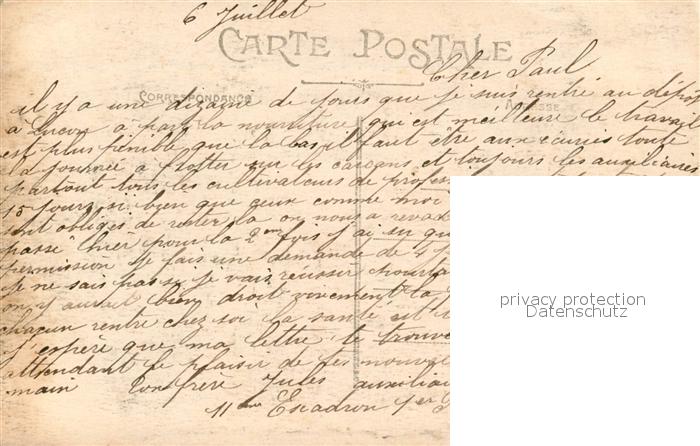 6 Juillet
CARTE POSTALE
Cher Paul
CORRESPONDANCE
ADRESSE
il y a une dizaine de jours que je suis rentré au dépôt
a Luçon a part la nourriture qui est meilleure le travail
est plus pénible que la bas il faut être aux écuries toute
la journée a frotter sur les et toujours les auxiliaires
partout tous les cultivateurs de profes
15 jours si bien que ceux comme moi
sont obligés de rester la on nous a
passé hier pour la 2me fois j'ai su qu
permission je fais une demande de 4
je ne sais pas si je vais réussir pourta
on y aurait bien droit vivement la
chacun rentre chez soi la santé est
J'espère que ma lettre te trouve
attendant le plaisir de tes nouve
main Ton frère Jules auxiliai
11me Escadron 1er
privacy protection
Datenschutz